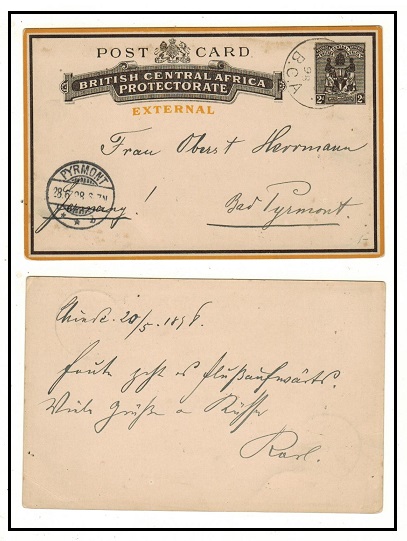 POST CARD
BRITISH CENTRAL AFRICA
PROTECTORATE
EXTERNAL
B.C.A
98
2d 2d
Frau Oberst Herrmann
Bad Pyrmont.
Germany!
PYRMONT
Chinde. 20/5. 1898.
Heute geht es flußaufwärts.
Viele Grüße u Küsse
Karl.